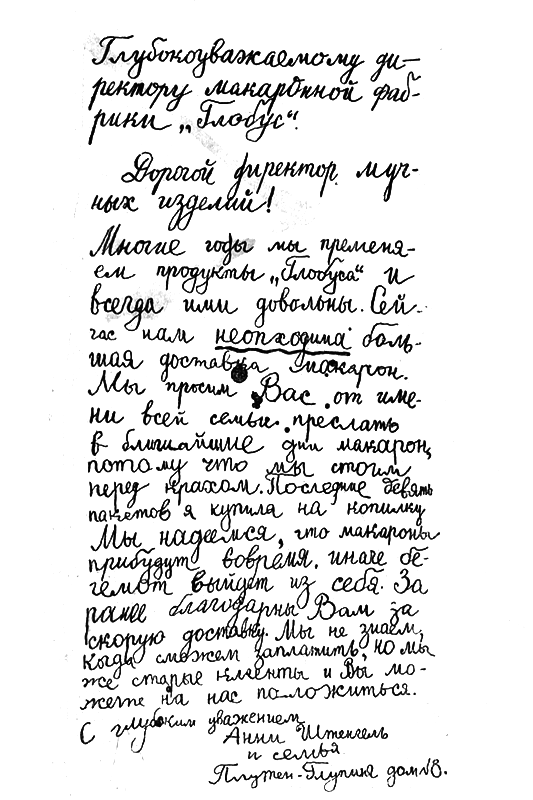 Глубокоуважаемому ди-
ректору макаронной фаб-
рики „Глобус“.
Дорогой директор муч-
ных изделий!
Многие годы мы пременя-
ем продукты „Глобуса“ и
всегда ими довольны. Сей-
час нам неопходима боль-
шая доставка макарон.
Мы просим Вас от име-
ни всей семьи преслать
в ближайшие дни макарон,
потому что мы стоим
перед крахом. Последние девять
пакетов я купила на копилку
Мы надеемся, что макароны
прибудут вовремя, иначе бе-
гемот выйдет из себя. За
ранее благодарны Вам за
скорую доставку. Мы не знаем,
когда сможем заплатить, но мы
же старые клиенты и Вы мо-
жете на нас положиться.
С глубоким уважением
Анни Штенгель
и семья
дом №8.